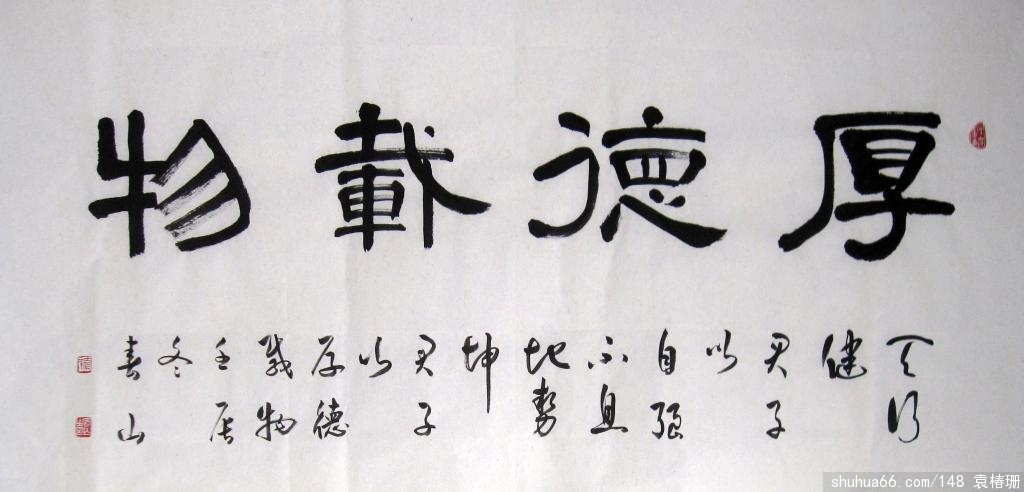 厚德載物
天行
健
君子
以
自强
不息
地勢
坤
君子
以
厚德
载物
壬辰
冬
春山
shuhua66.com/148 袁椿珊